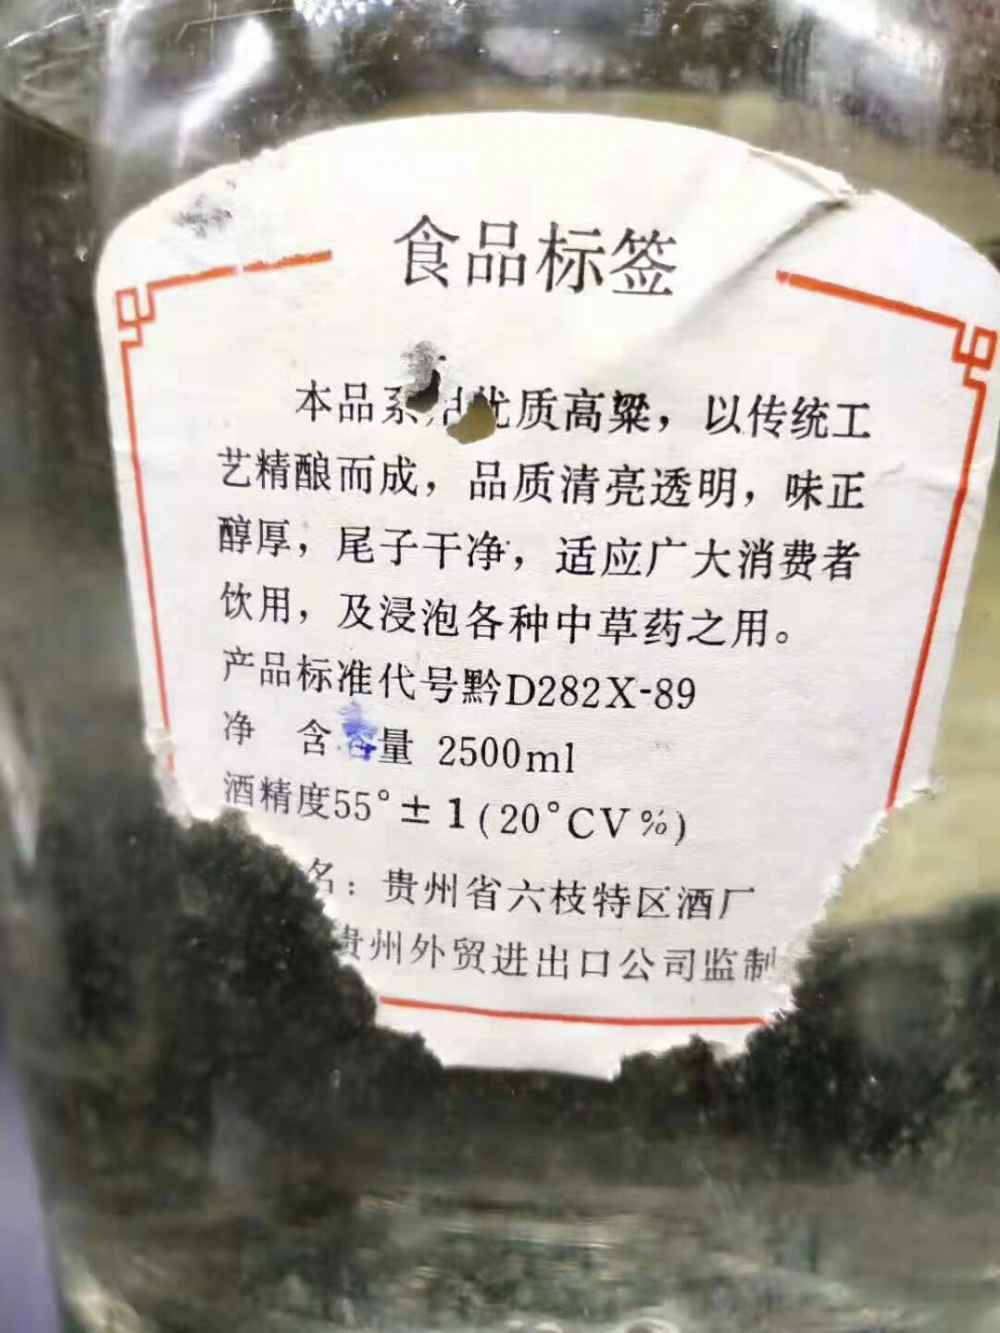 食品标签
本品系 优质高粱，以传统工
艺精酿而成，品质清亮透明，味正
醇厚，尾子干净，适应广大消费者
饮用，及浸泡各种中草药之用。
产品标准代号黔D282X-89
净 含容量 2500ml
酒精度55°±1(20°CV%)
名：贵州省六枝特区酒厂
贵州外贸进出口公司监制